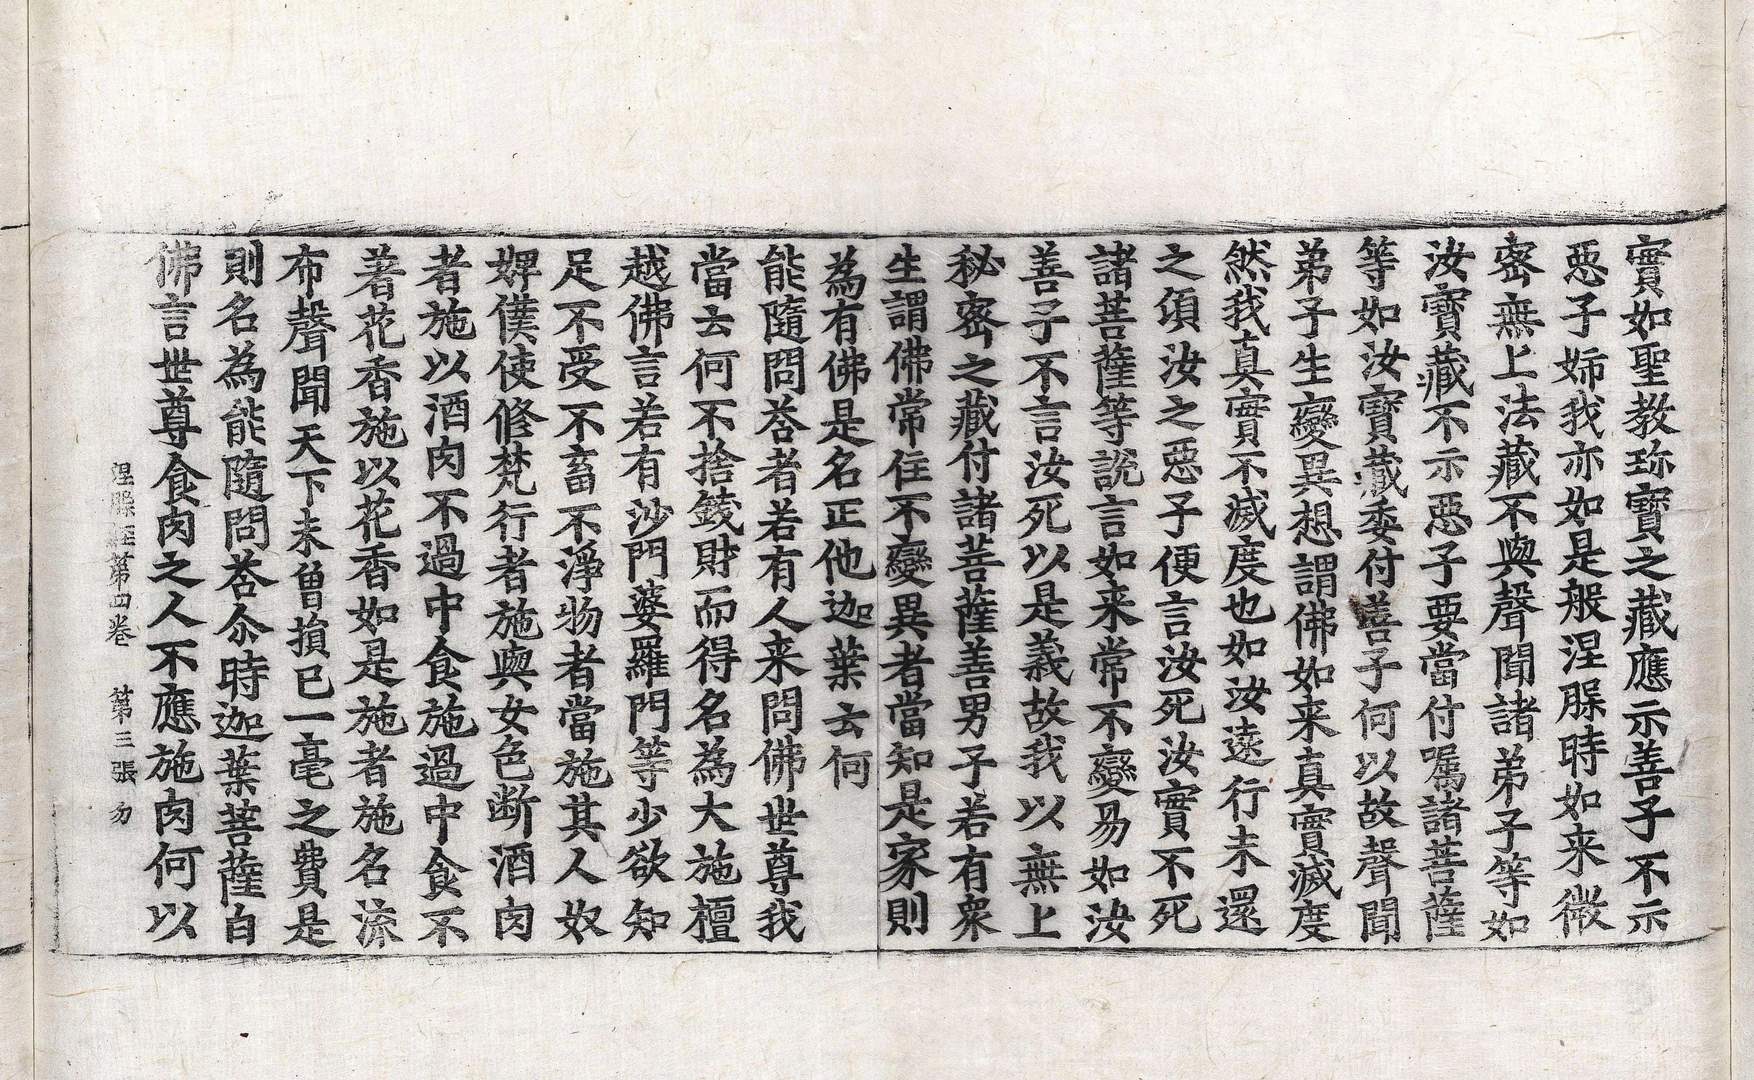 實如聖教珎寶之藏應示善子不示
惡子姊我亦如是般涅槃時如来微
密無上法藏不與聲聞諸弟子等如
汝寶藏不示惡子要當付囑諸菩薩
等如汝寶藏委付善子何以故聲聞
弟子生變異想謂佛如来真實滅度
然我真實不滅度也如汝遠行未還
之頃汝之惡子便言汝死汝實不死
諸菩薩等說言如来常不變易如汝
善子不言汝死以是義故我以無上
秘密之藏付諸菩薩善男子若有衆
生謂佛常住不變異者當知是家則
為有佛是名正他迦葉云何
能隨問荅者若有人来問佛世尊我
當云何不捨錢財而得名為大施檀
越佛言若有沙門婆羅門等少欲知
足不受不畜不淨物者當施其人奴
婢僕使修梵行者施與女色断酒肉
者施以酒肉不過中食施過中食不
著花香施以花香如是施者施名流
布聲聞天下未曾損已一毫之費是
則名為能隨問荅尒時迦葉菩薩白
佛言世尊食肉之人不應施肉何以
涅槃經第四卷　第三張　勿